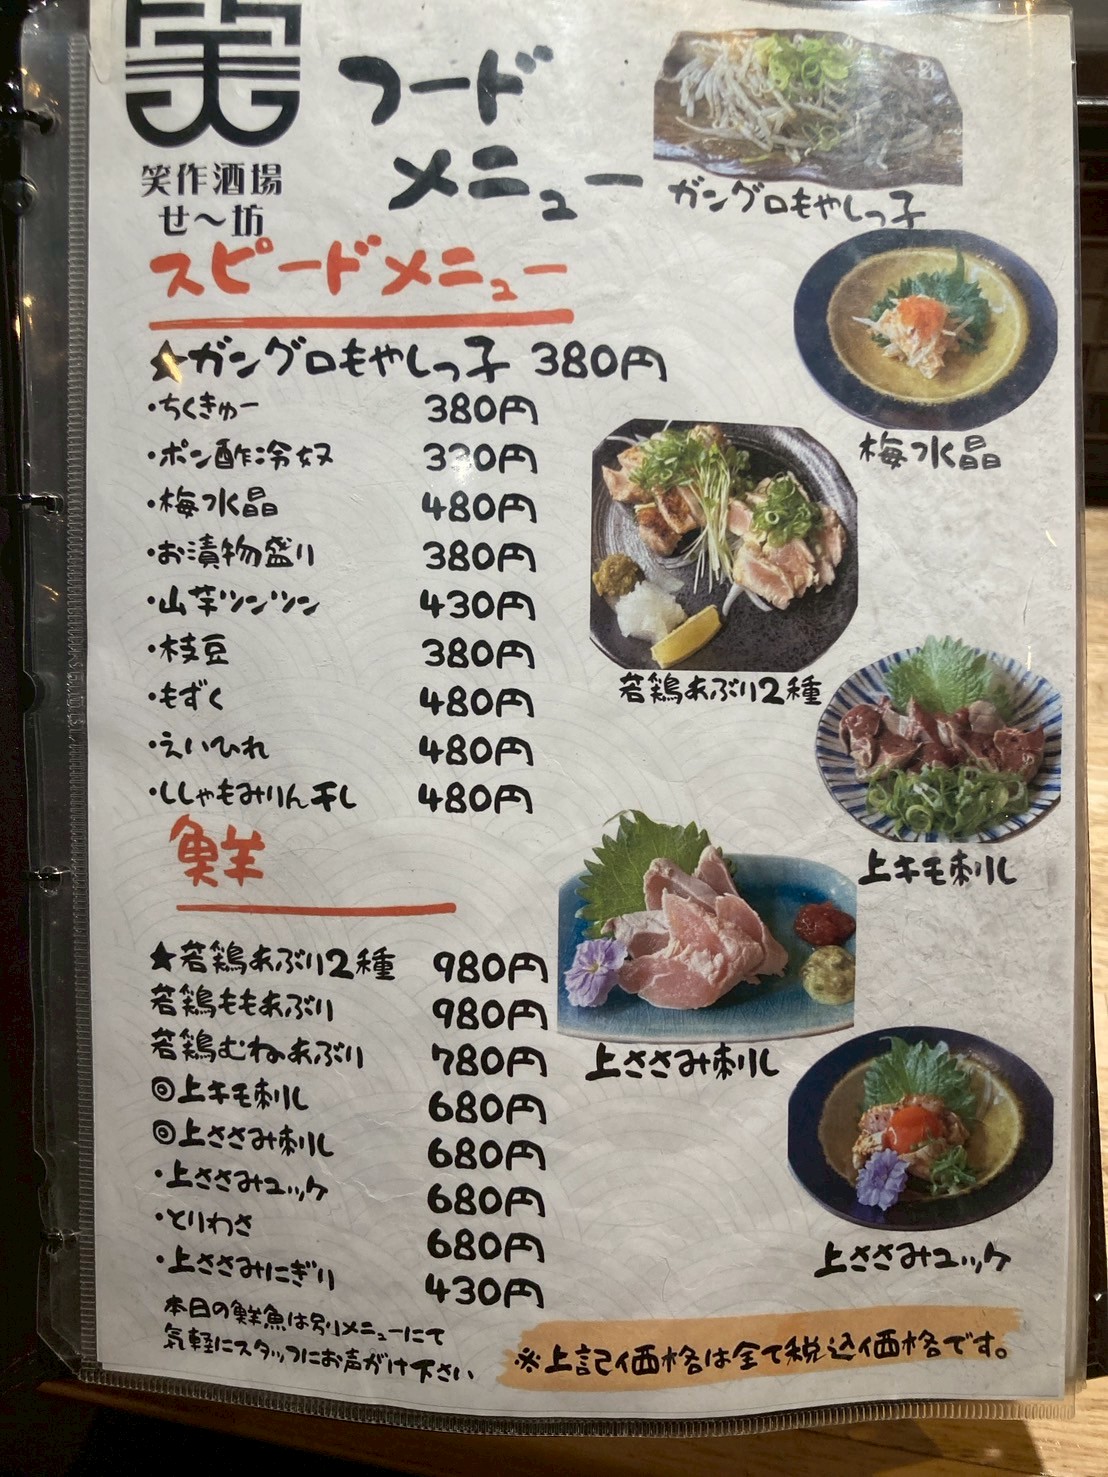 笑
フード
メニュー
笑作酒場
せ〜坊
ガングロもやしっ子
スピードメニュー
★ガングロもやしっ子 380円
・ちくきゅー 380円
・ポン酢冷奴
・梅水晶 480円
・お漬物盛り 380円
・山芋ツンツン 430円
・枝豆 380円
・もずく 480円
・えいひれ 480円
・ししゃもみりん干し 480円
梅水晶
若鶏あぶり2種
上キモ刺し
鮮
★若鶏あぶり2種 980円
若鶏ももあぶり 980円
若鶏むねあぶり 780円
◎上キモ刺し 680円
◎上ささみ刺し 680円
・上ささみユッケ 680円
・とりわさ 680円
・上ささみにぎり 430円
上ささみ刺し
上ささみユッケ
本日の鮮魚は別メニューにて
気軽にスタッフにお声がけ下さい
※上記価格は全て税込価格です。